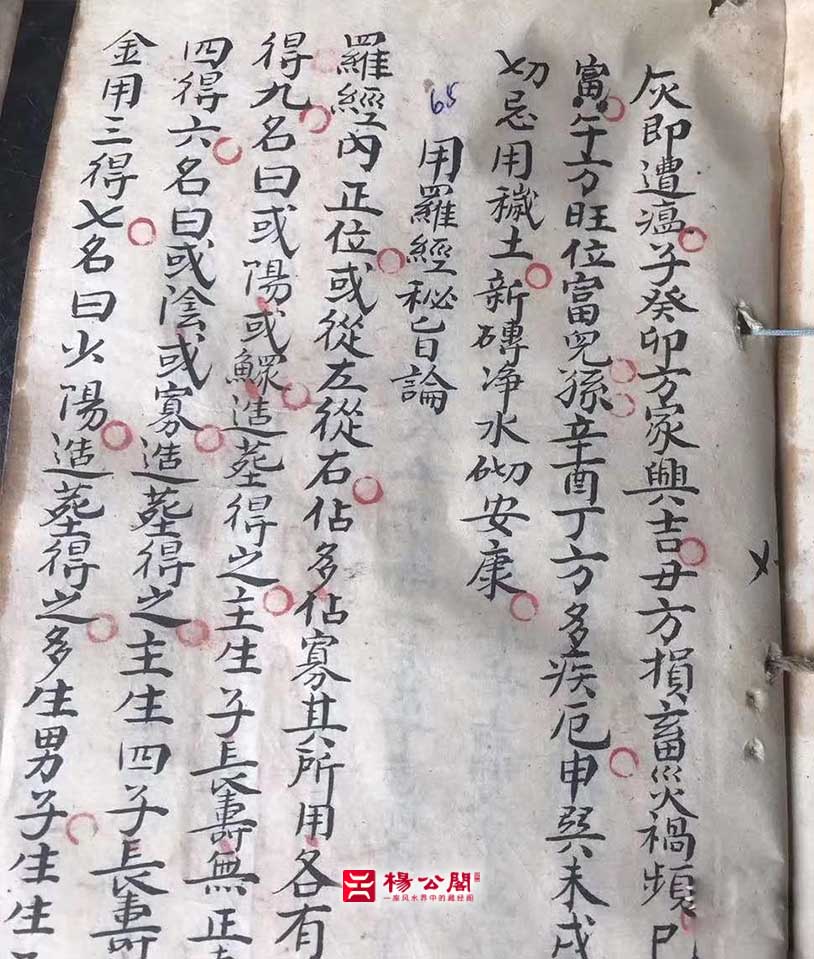 灰即遭瘟子癸卯方家興吉丑方損畜災禍頻巳
寅午方旺位富兒孫辛酉丁方多疾厄申巽未戌
切忌用穢土新磚净水砌安康
65
用羅經秘旨論
羅經内正位或從左從右佔多佔寡其所用各有
得九名曰或陽或鰥造塟得之主生子長壽無正
四得六名曰或陰或寡造塟得之主生四子長壽
金用三得七名曰少陽造塟得之多生男子生生
楊公閣
一座风水界中的藏经阁